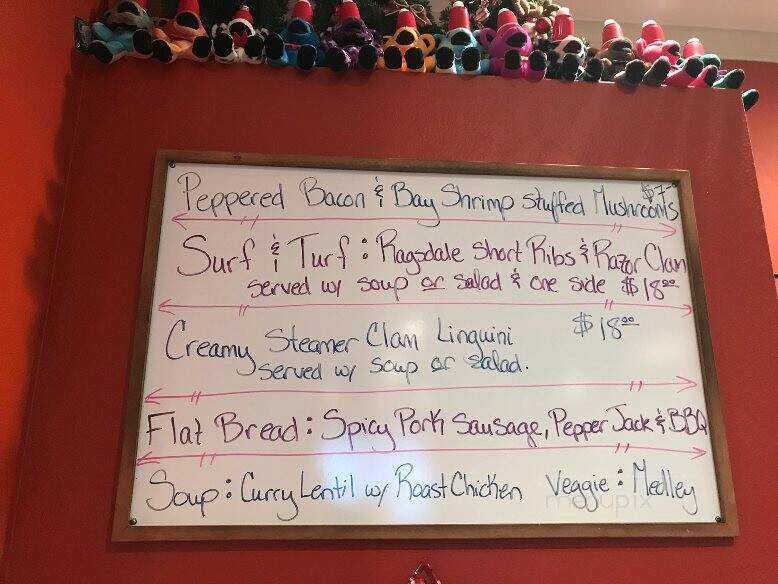 Peppered Bacon & Bay Shrimp stuffed Mushrooms $7
Surf & Turf : Ragsdale Short Ribs & Razor Clam
served w/ soup or salad & one side $18.00
Creamy Steamer Clam Linguini $18.00
served w/ soup or salad.
Flat Bread : Spicy Pork Sausage, Pepper Jack & BBQ
Soup : Curry Lentil w/ Roast Chicken Veggie : Medley